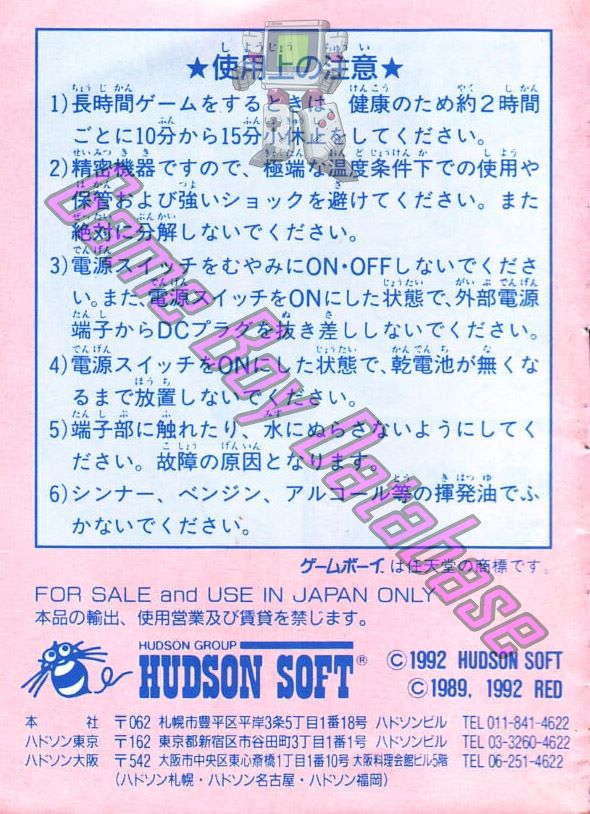 ★使用上の注意★
1)長時間ゲームをするときは、健康のため約2時間
ごとに10分から15分小休止をしてください。
2)精密機器ですので、極端な温度条件下での使用や
保管および強いショックを避けてください。また
絶対に分解しないでください。
3)電源スイッチをむやみにON・OFFしないでくださ
い。また、電源スイッチをONにした状態で、外部電源
端子からDCプラグを抜き差ししないでください。
4)電源スイッチをONにした状態で、乾電池が無くな
るまで放置しないでください。
5)端子部に触れたり、水にぬらさないようにしてく
ださい。故障の原因となります。
6)シンナー、ベンジン、アルコール等の揮発油でふ
かないでください。
ゲームボーイは任天堂の商標です。
FOR SALE and USE IN JAPAN ONLY
本品の輸出、使用営業及び賃貸を禁じます。
HUDSON GROUP
HUDSON SOFT®
©1992 HUDSON SOFT
©1989, 1992 RED
本社 〒062 札幌市豊平区平岸3条5丁目1番18号 ハドソンビル TEL 011-841-4622
ハドソン東京 〒162 東京都新宿区市谷田町3丁目1番1号 ハドソンビル TEL 03-3260-4622
ハドソン大阪 〒542 大阪市中央区東心斎橋1丁目1番10号 大阪料理会館ビル5階 TEL 06-251-4622
(ハドソン札幌・ハドソン名古屋・ハドソン福岡)
Game Boy Database